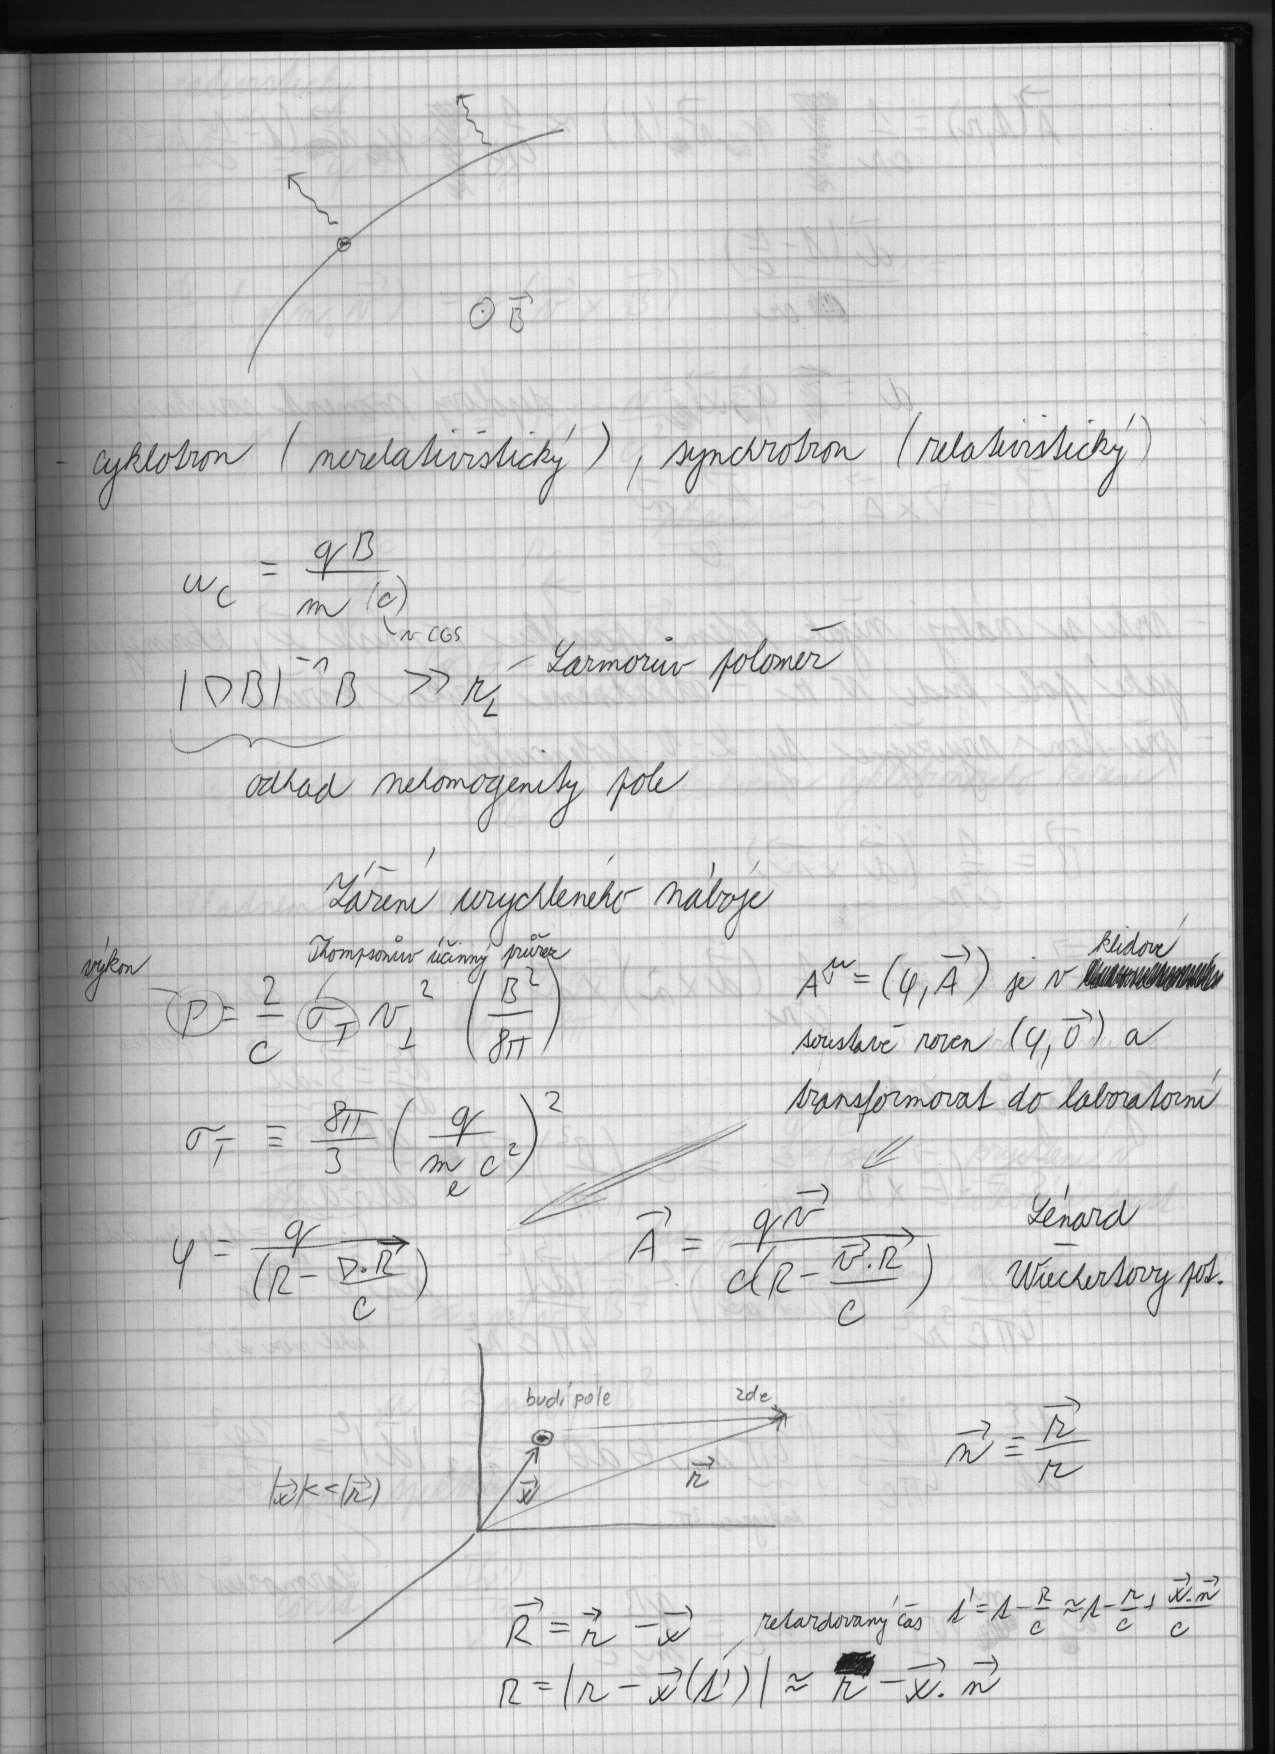 ⊙ B⃗
- cyklotron (nerelativistický), synchrotron (relativistický)
ω_C = qB / m (c)
v CGS
|∇B|^-1 B >> r_L - Larmorův poloměr
odhad nehomogenity pole
Záření urychleného náboje
výkon
Thompsonův účinný průřez
P = 2/c σ_T v_⊥^2 (B^2 / 8π)
σ_T ≡ 8π/3 (q / m_e c^2)^2
A^μ = (φ, A⃗) je v klidové
soustavě roven (φ, 0⃗) a
transformovat do laboratorní
φ = q / (R - v⃗.R⃗ / c)
A⃗ = q v⃗ / c(R - v⃗.R⃗ / c)
Lénard
Wiechertovy pot.
budí pole
zde
x⃗
r⃗
|x⃗| << |r⃗|
n⃗ ≡ r⃗ / r
R⃗ = r⃗ - x⃗
retardovaný čas t' = t - R/c ≈ t - r/c + x⃗.n⃗ / c
R = |r - x⃗(t')| ≈ r - x⃗. n⃗